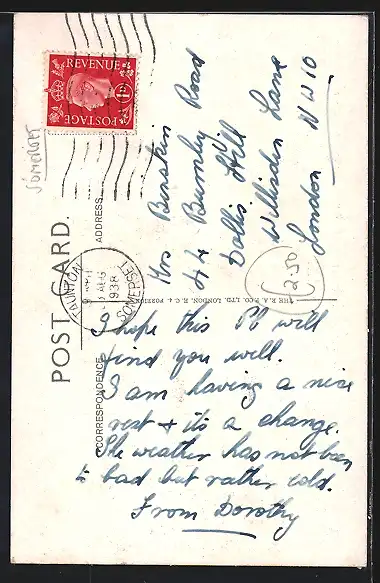 POST CARD.
CORRESPONDENCE
ADDRESS
THE R.A.P. CO., LTD., LONDON, E.C. 4.
REVENUE
POSTAGE
1D
AUG
1938
SOMERSET
Somerset
Mrs Benstein
44 Burnley Road
Dollis Hill
Willisden Lane
London NW10
2.50
I hope this PC will
find you well.
I am having a nice
rest + its a change.
The weather has not been
to bad but rather cold.
From Dorothy